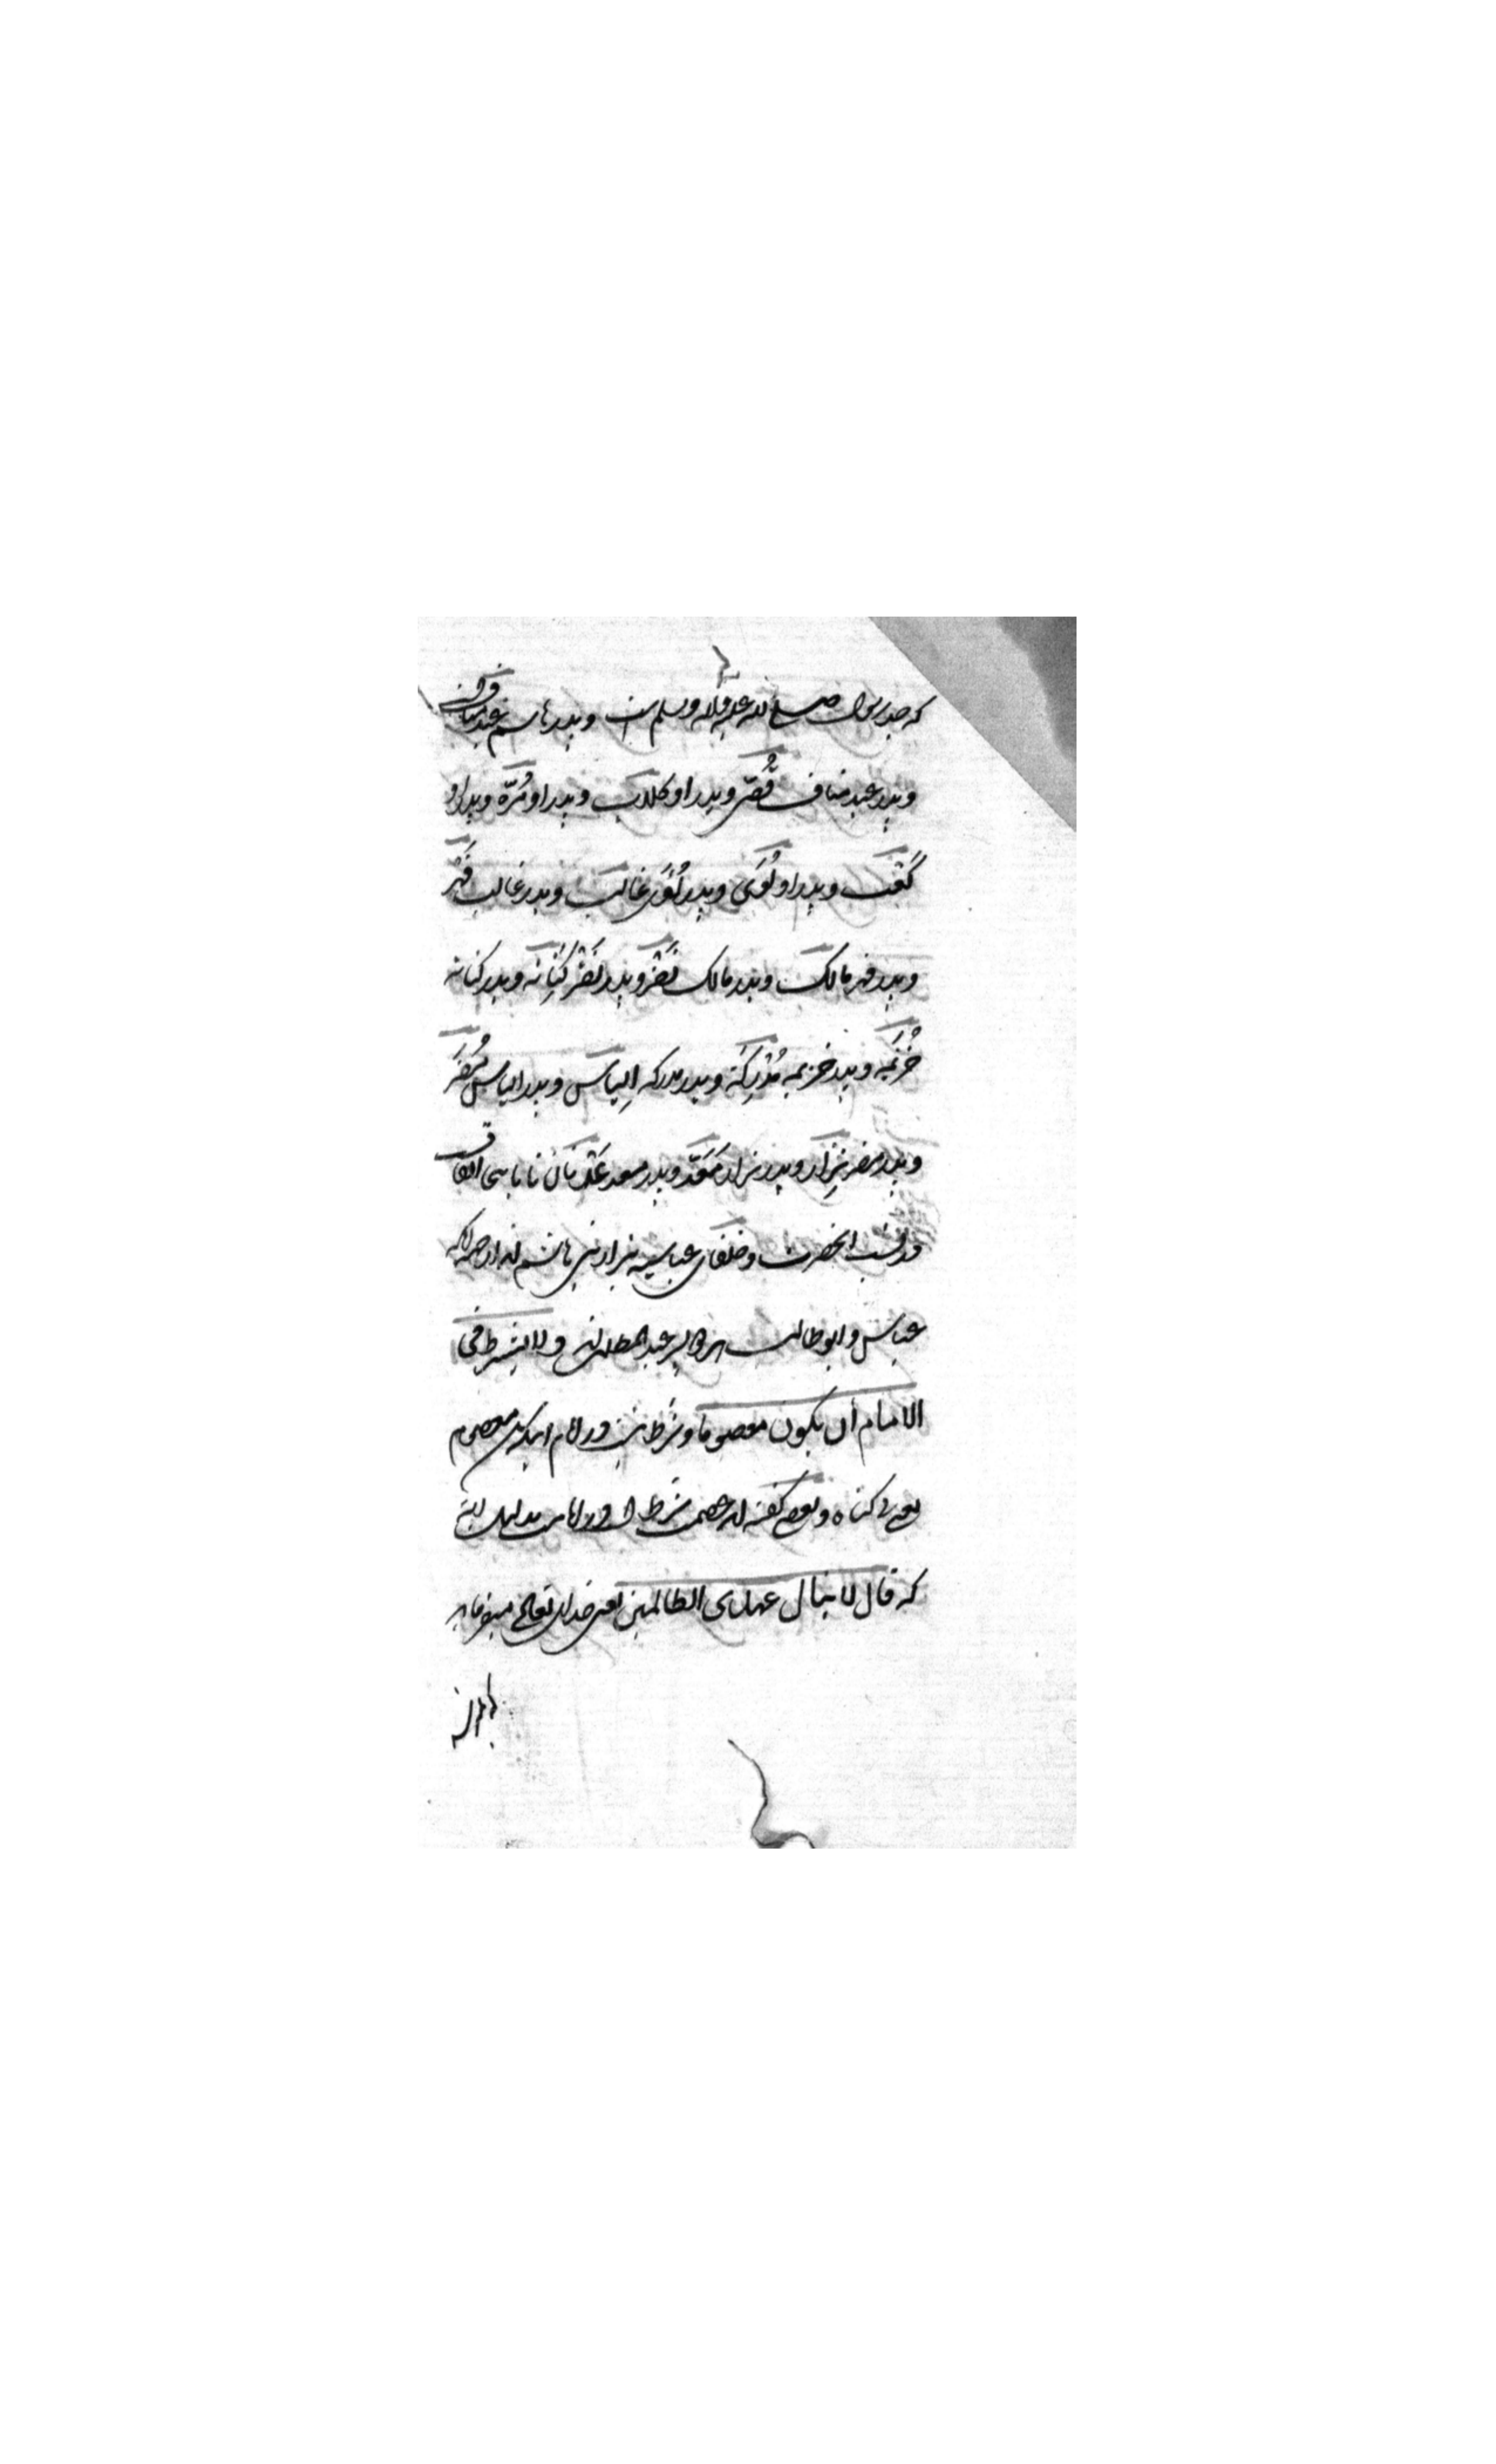 که جد رسول صلی الله علیه وآله وسلم است و پدر هاشم عبد مناف
و پدر عبد مناف قُصَیّ و پدر او کلاب و پدر او مُرَّه و پدر او
کَعْب و پدر او لُوَی و پدر لُوَی غالب و پدر غالب فَهْر
و پدر فهر مالک و پدر مالک نَضْر و پدر نَضْر کِنِانَه و پدر کنانه
خُزَیْمَه و پدر خزیمه مُدْرِکَة و پدر مدرکه اِلیاس و پدر الیاس مُضَر
و پدر مضر نِزَار و پدر نزار مَعَدّ و پدر معد عَدْنَانْ تا باینجا اتفاق
در نسب انحضرت و خلفای عباسیه نیز از بنی هاشم اند از جهة انکه
عباس و ابو طالب هر دو پسر عبد المطلب اند ولا یشترط فی
الامام أن یکون معصوما و شرط نیست در امام اینکه معصوم
یعنی بی کناه و بعضی کفته اند عصمت شرط است در امامت بدلیل
که قال لا ینال عهدی الظالمین یعنی خدای تعالی میفرماید